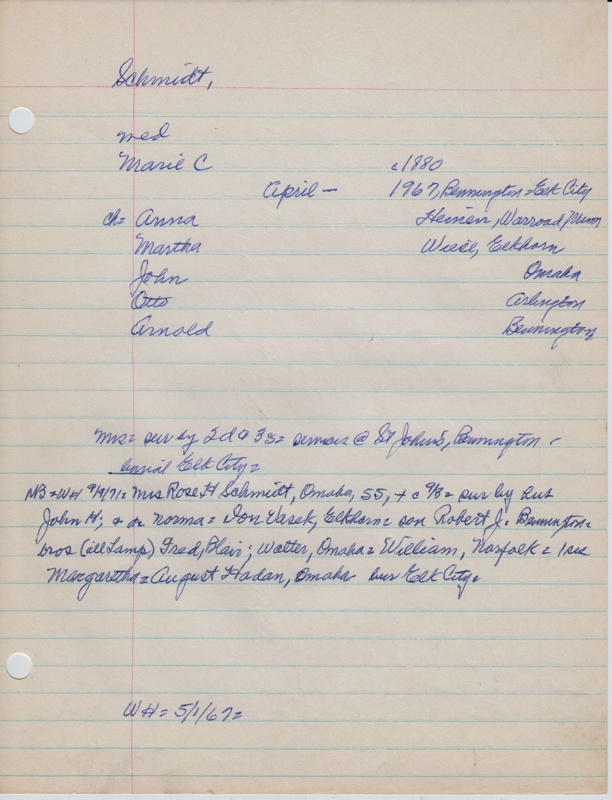 Schmidt,
med
Marie C c1880
April — 1967, Bennington = Elk City
ch= Anna Heinen, Warroad, Minn
Martha Wiese, Elkhorn
John Omaha
Otto Arlington
Arnold Bennington
Mrs= sur by 2 d & 3 s= services @ St John's, Bennington -
burial Elk City=
NB=WH 9/9/71= Mrs Rose H Schmidt, Omaha, 55, + c 9/8= sur by hus
John H; & da Norma= Don Vasek, Elkhorn= son Robert J. Bennington=
bros (ill Lamp) Fred, Blair; Walter, Omaha= William, Norfolk= 1 sis
Margaretha= August Hadan, Omaha bur Elk City=
WH= 5/1/67=